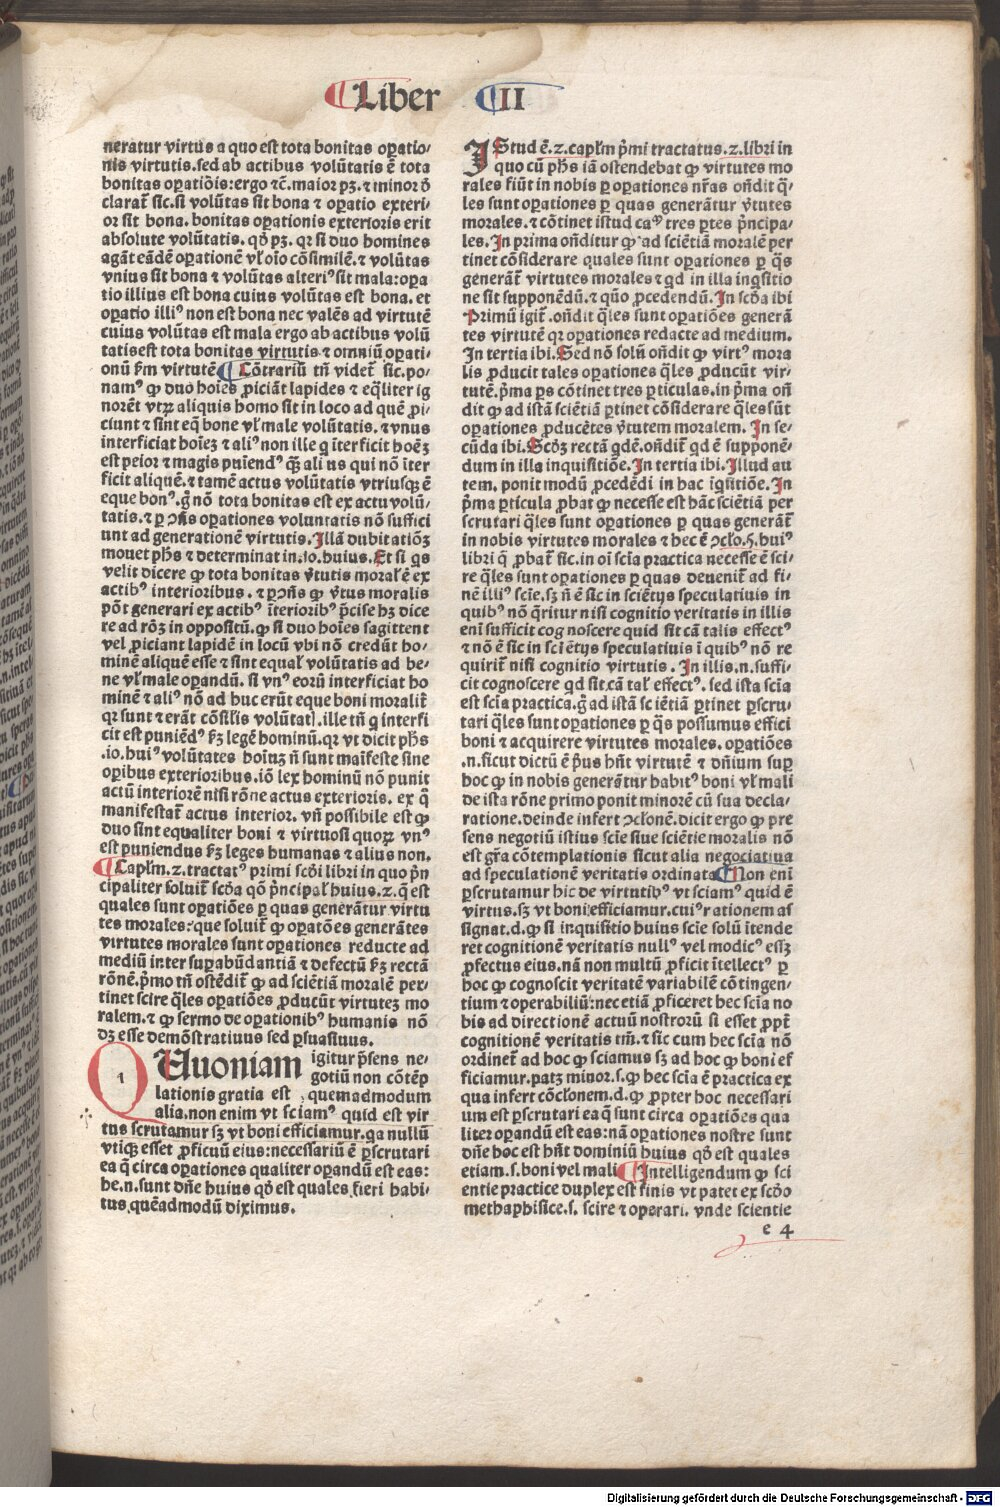 Liber II
neratur virtus a quo est tota bonitas oꝑatio-
nis virtutis. sed ab actibus volūtatis ē tota
bonitas oꝑatiōis: ergo ⁊c̄. maior pꝫ. ⁊ minor ꝺ̄
claraꝉ sic. si volūtas sit bona ⁊ oꝑatio exteri-
or sit bona. bonitas oꝑationis exterioris erit
absolute volūtatis. qꝺ̄ pꝫ. qꝛ si duo homines
agāt eādē oꝑationē vꝉ oīo cōsimilē. ⁊ volūtas
vnius sit bona ⁊ volūtas alteriꝰ sit mala: oꝑa
tio illius est bona cuius volūtas est bona. et
oꝑatio illiꝰ non est bona nec valēs ad virtutē
cuius volūtas est mala ergo ab actibus volū
tatis est tota bonitas virtutis ⁊ omniū oꝑati-
onū ẜm virtutē ¶ Cōtrariū tn̄ videꝉ sic. po-
namꝰ ꝙ duo hoīes ꝓiciāt lapides ⁊ eq̄liter ig
norēt vtꝝ aliquis homo sit in loco ad quē ꝓi-
ciunt ⁊ sint eq̄ bone vꝉ male volūtatis. ⁊ vnus
interficiat hoīeꝫ ⁊ aliꝰ non ille q̇ īterficit hoēꝫ
est peior ⁊ magis puniendꝰ q̄ꝫ ali us qui nō īter
ficit aliquē. ⁊ tamē actus volūtatis vtriusqꝫ ē
eque bonꝰ. g̊ nō tota bonitas est ex actu volū-
tatis. ⁊ ꝑ ꝯn̄s oꝑationes voluntatis nō suffici
unt ad generationē virtutis. Illā dubitatiōꝫ
mouet ph̄s ⁊ determinat in .io. huius. Et si q̇s
velit dicere ꝙ tota bonitas v̄tutis moralꝭ ē ex
actibꝰ interioribus. ⁊ ꝑ ꝯn̄s ꝙ v̄tus moralis
pōt generari ex actibꝰ īterioribꝰ p̄cise hꝫ dice
re ad rōꝫ in oppositū. ꝙ si duo hoīes sagittent
vel ꝓiciant lapidē in locū vbi nō credūt ho-
minē aliquē esse ⁊ sint equalꝭ volūtatis ad be-
ne vꝉ male oꝑandū. si vnꝰ eorū interficiat ho
minē ⁊ aliꝰ nō ad huc erūt eque boni moraliꝉ
qꝛ sunt ⁊ erāt cōsilis volūtatꝭ. ille tn̄ q̇ interfi
cit est puniēdꝰ ẜꝫ legē hominū. qꝛ vt dicit ph̄s
.io. huiꝰ volūtates hoīuꝫ n̄ sunt māifeste sine
oꝑibus exterioribus. iō lex hominū nō punit
actū interiorē nisi rōne actus exterioris. ex q̄
manifestaꝉ actus interior. vn̄ possibile est ꝙ
duo sint equaliter boni ⁊ virtuosi quoꝝ vnꝰ
est puniendus ẜꝫ leges humanas ⁊ alius non.
¶ Capꝉm .2. tractatꝰ primi scḋi libri in quo p̄n
cipaliter soluiꝉ scḋa qō p̄ncipalꝭ huius .2. q̄ est
quales sunt oꝑatiōes ꝑ quas generātur virtu
tes morales: que soluiꝉ ꝙ oꝑatōes generātes
virtutes morales sunt oꝑationes reducte ad
mediū inter suꝑabūdantiā ⁊ defectū ẜꝫ rectā
rōnē. p̄mo tn̄ ostēdiꝉ ꝙ ad sciētiā moralē per-
tinet scire q̄les oꝑatiōes ꝓducūt virtuteꝫ mo
ralem. ⁊ ꝙ sermo de oꝑationibꝰ humanis nō
dꝫ esse demōstratiuus sed ꝑsuasiuus.
QUuoniam igitur p̄sens ne-
gotiū non cōtēp
lationis gratia est , quemadmodum
alia. non enim vt sciamꝰ quid est vir
tus scrutamur sꝫ vt boni efficiamur. qa nullū
vtiqꝫ esset ꝓficuū eius: necessariū ē ꝑscrutari
ea q̄ circa oꝑationes qualiter oꝑandū est eas:
he .n. sunt dn̄e huius qḋ est quales fieri habi-
tus quēadmodū diximus.
IStud ē .2. capꝉm p̄mi tractatus .2. libri in
quo cū ph̄s iā ostendebat ꝙ virtutes mo
rales fiūt in nobis ꝑ oꝑationes nr̄as on̄dit q̄-
les sunt oꝑationes ꝑ quas generātur v̄tutes
morales. ⁊ cōtinet istud caᵐ tres ꝑtes p̄ncipa-
les. In prima on̄ditur ꝙ ad sciētiā moralē per
tinet cōsiderare quales sunt oꝑationes ꝑ q̄s
generāꝉ virtutes morales ⁊ qd in illa inq̇sitio
ne sit supponēdū. ⁊ quō ꝓcedendū. In scḋa ibi
Primū igiꝉ. on̄dit q̄les sunt oꝑatiōes generā
tes virtutē qꝛ oꝑationes redacte ad medium.
In tertia ibi. Sed nō solū on̄dit ꝙ virtꝰ mora
lis ꝓducit tales oꝑationes q̄les ꝓducūt vir-
tutē. p̄ma ꝑs cōtinet tres ꝑticulas. in p̄ma on̄
dit ꝙ ad istā sciētiā ꝑtinet cōsiderare q̄les sūt
oꝑationes ꝓducētes v̄tutem moralem. In se-
cūda ibi. Scḋꝫ rectā qdē. on̄diꝉ qd ē supponē-
dum in illa inquisitiōe. In tertia ibi. Illud au
tem. ponit modū ꝓcedēdi in hac īq̇sitiōe. In
p̄ma ꝑticula ꝓbat ꝙ necesse est hāc sciētiā per
scrutari q̄les sunt oꝑationes ꝑ quas generāꝉ
in nobis virtutes morales ⁊ hec ē ꝯclo .5. huiꝰ
libri q̄ ꝓbaꝉ sic. in oī scīa practica necesse ē sci-
re q̄les sunt oꝑationes ꝑ quas deueniꝉ ad fi-
nē illiꝰ scīe. sꝫ n̄ ē sic in sciētijs speculatiuis in
quibꝰ nō q̄ritur nisi cognitio veritatis in illis
enī sufficit cog noscere quid sit cā talis effectꝰ
⁊ nō ē sic in sciētijs speculatiuis ī quibꝰ nō re
quiriꝉ nisi cognitio virtutis. In illis .n. suffi-
cit cognoscere qd sit cā talꝭ effectꝰ. sed ista scīa
est scīa practica. g̊ ad istā sciētiā ꝑtinet ꝑscru-
tari q̄les sunt oꝑationes ꝑ q̄s possumus effici
boni ⁊ acquirere virtutes morales. oꝑatiōes
.n. sicut dictū ē p̄us hn̄t virtutē ⁊ dn̄ium suꝑ
hoc ꝙ in nobis generātur habitꝰ boni vꝉ mali
de ista rōne primo ponit minorē cū sua decla-
ratione. deinde infert ꝯclōnē. dicit ergo ꝙ pre
sens negotiū istius scīe siue sciētie moralis nō
est gr̄a cōtemplationis sicut alia negociatiua
ad speculationē veritatis ordinata ¶ Non enī
ꝑscrutamur hic de virtutibꝰ vt sciamꝰ quid ē
virtus. sꝫ vt boni efficiamur. cuiꝰ rationem as
signat. d. ꝙ si inquisitio huius scīe solū ītende
ret cognitionē veritatis nullꝰ vel modicꝰ esseꝫ
ꝓfectus eius. nā non multū ꝓficit ītellectꝰ ꝑ
hoc ꝙ cognoscit veritatē variabilē cōtingen-
tium ⁊ operabiliū: nec etiā ꝓficeret hec scīa no
bis ad directionē actuū nostrorū si esset ꝓpꝉ
cognitionē veritatis tm̄. ⁊ sic cum hec scīa nō
ordineꝉ ad hoc ꝙ sciamus sꝫ ad hoc ꝙ boni ef
ficiamur. patꝫ minor .s. ꝙ hec scīa ē practica ex
qua infert cōclonem. d. ꝙ propter hoc necessari
um est ꝑscrutari ea q̄ sunt circa oꝑatiōes qua
liter oꝑandū est eas: nā oꝑationes nostre sunt
dn̄e hoc est hn̄t dominiū huius qḋ est quales
etiam .s. boni vel mali ¶ Intelligendum ꝙ sci
entie practice duplex est finis vt patet ex scḋo
methaphisice .s. scire ⁊ operari. vnde scientie
e 4
Digitalisierung gefördert durch die Deutsche Forschungsgemeinschaft - DFG